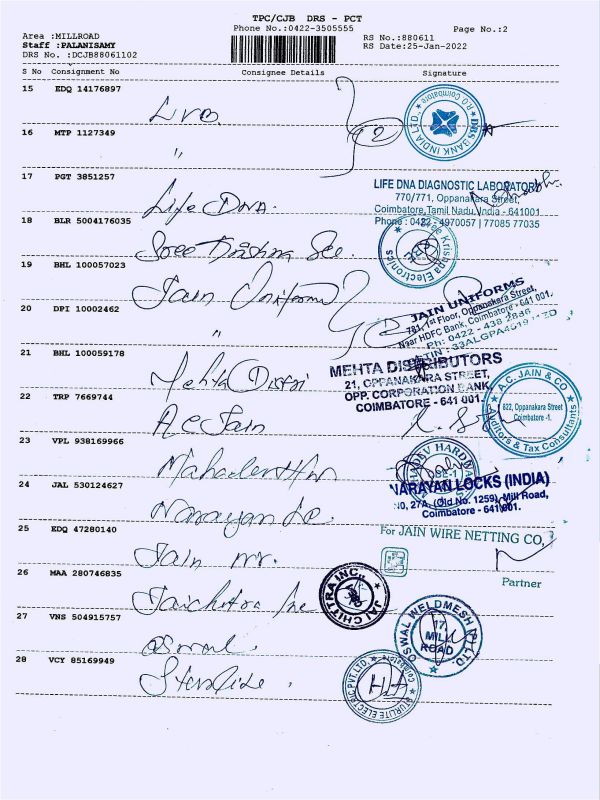 TPC/CJB DRS - PCT
Phone No.:0422-3505555
Page No.:2
Area :MILLROAD
Staff :PALANISAMY
DRS No. :DCJB88061102
RS No.:880611
RS Date:25-Jan-2022
S No Consignment No Consignee Details Signature
15 EDQ 14176897
LVB
DRS BANK INDIA LTD. R.O Coimbatore
16 MTP 1127349
"
2
17 PGT 3851257
Life DNA
LIFE DNA DIAGNOSTIC LABORATORY
770/771, Oppanakara Street,
Coimbatore,Tamil Nadu,India - 641001
Phone : 0422- 4970057 | 77085 77035
18 BLR 5004176035
Sree Krishna Ele.
Sree Krishna Electronics
CBE
19 BHL 100057023
Jain Uniforms
JAIN UNIFORMS
781, 1st Floor, Oppanakara Street,
Near HDFC Bank, Coimbatore - 641 001.
Ph: 0422 - 438 2886
20 DPI 10002462
"
21 BHL 100059178
Mehta Distri
MEHTA DISTRIBUTORS
21, OPPANAKARA STREET,
OPP. CORPORATION BANK,
COIMBATORE - 641 001.
22 TRP 7669744
A C Jain
A.C. JAIN & CO
822, Oppanakara Street
Coimbatore -1.
Auditors & Tax Consultants
23 VPL 938169966
Mahadev Hw
24 JAL 530124627
Narayan Lo
NARAYAN LOCKS (INDIA)
NO, 27A, (Old No. 1259) Mill Road,
Coimbatore - 641 001.
25 EDQ 47280140
Jain
For JAIN WIRE NETTING CO,
Partner
26 MAA 280746835
Jaichitra Inc
JAI CHITTRA INC.,
27 VNS 504915757
oswal
OSWAL WELDMESH (P) LTD.
17,
MILL
ROAD
28 VCY 85169949
Sterlite
STURLITE ELECTRIC PVT. LTD.
Coimbatore